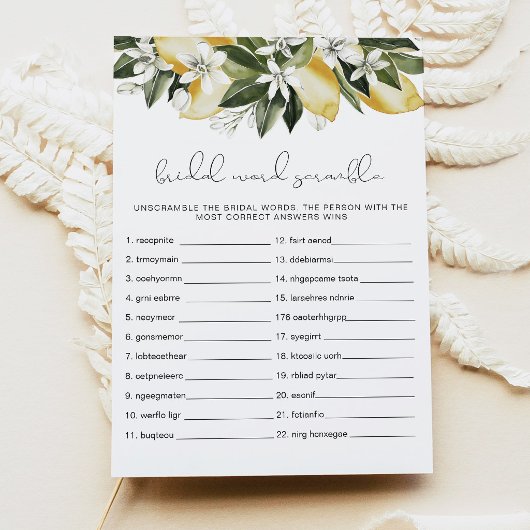 bridal word scramble
UNSCRAMBLE THE BRIDAL WORDS. THE PERSON WITH THE
MOST CORRECT ANSWERS WINS
1. recopnite
2. trmoymain
3. ooehyonmn
4. grni eabrre
5. neoymeor
6. gonsmemor
7. lobteoethear
8. cetpneleero
9. ngeegmaten
10. werflo ligr
11. buqteou
12. fsirt aenod
13. ddebiarmsi
14. nhgapcame tsota
15. larsehres ndnrie
176 oaoterhhgrpp
17. syegirrt
18. ktcosilc uorh
19. rbliad pytar
20. eaonif
21. fotianfio
22. nirg honxegae